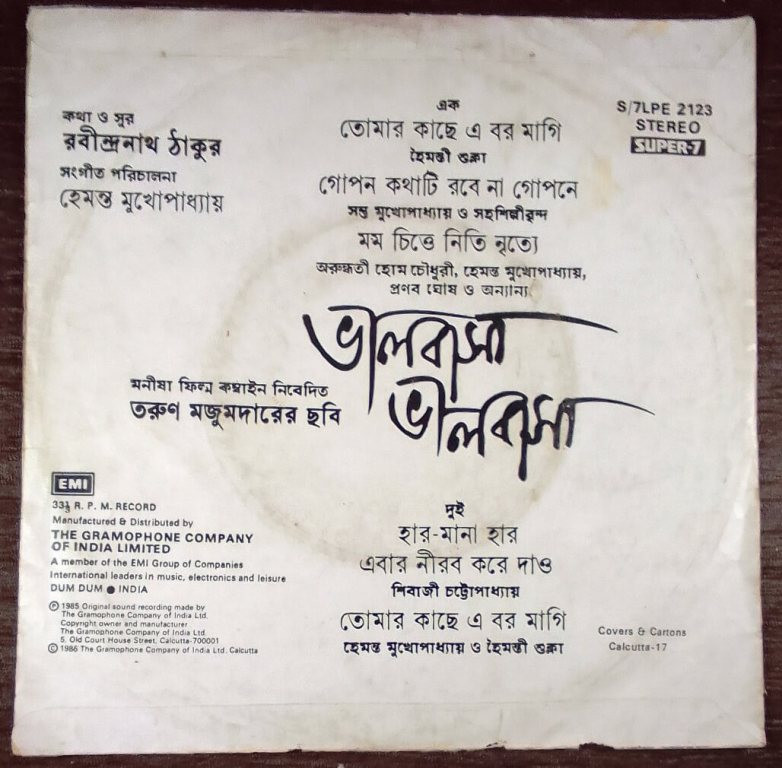 কথা ও সুর
রবীন্দ্রনাথ ঠাকুর
সংগীত পরিচালনা
হেমন্ত মুখোপাধ্যায়
এক
তোমার কাছে এ বর মাগি
হৈমন্তী শুক্লা
গোপন কথাটি রবে না গোপনে
সন্তু মুখোপাধ্যায় ও সহশিল্পীবৃন্দ
মম চিত্তে নিতি নৃত্যে
অরুন্ধতী হোম চৌধুরী, হেমন্ত মুখোপাধ্যায়,
প্রণব ঘোষ ও অন্যান্য
S/7LPE 2123
STEREO
SUPER-7
ভালবাসা
ভালবাসা
মনীষা ফিল্ম কম্বাইন নিবেদিত
তরুণ মজুমদারের ছবি
EMI
33⅓ R. P. M. RECORD
Manufactured & Distributed by
THE GRAMOPHONE COMPANY
OF INDIA LIMITED
A member of the EMI Group of Companies
International leaders in music, electronics and leisure
DUM DUM ● INDIA
Ⓟ 1985 Original sound recording made by
The Gramophone Company of India Ltd.
Copyright owner and manufacturer
The Gramophone Company of India Ltd.
5, Old Court House Street, Calcutta-700001
© 1986 The Gramophone Company of India Ltd. Calcutta
দুই
হার-মানা হার
এবার নীরব করে দাও
শিবাজী চট্টোপাধ্যায়
তোমার কাছে এ বর মাগি
হেমন্ত মুখোপাধ্যায় ও হৈমন্তী শুক্লা
Covers & Cartons
Calcutta-17